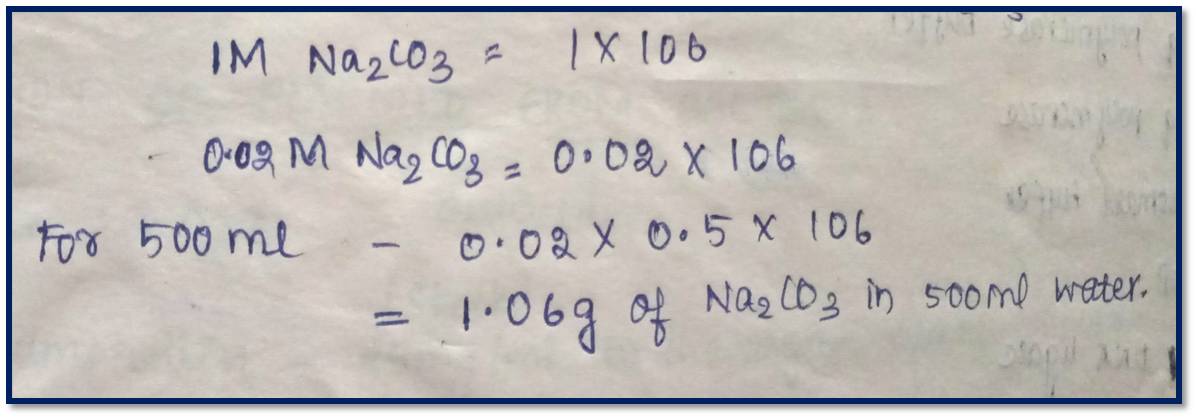 1M Na₂CO₃ = 1 X 106
0.02 M Na₂CO₃ = 0.02 X 106
For 500 ml - 0.02 X 0.5 X 106
= 1.06g of Na₂CO₃ in 500ml water.